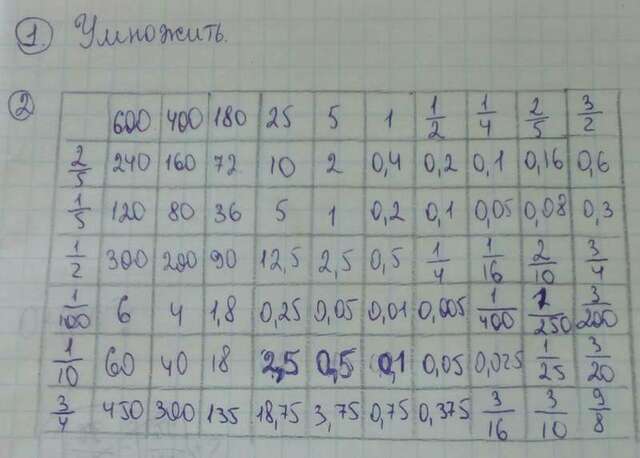 1. Умножить.
2
600 400 180 25 5 1 1/2 1/4 2/5 3/2
2/5 240 160 72 10 2 0,4 0,2 0,1 0,16 0,6
1/5 120 80 36 5 1 0,2 0,1 0,05 0,08 0,3
1/2 300 200 90 12,5 2,5 0,5 1/4 1/16 2/10 3/4
1/100 6 4 1,8 0,25 0,05 0,01 0,005 1/400 1/250 3/200
1/10 60 40 18 2,5 0,5 0,1 0,05 0,025 1/25 3/20
3/4 450 300 135 18,75 3,75 0,75 0,375 3/16 3/10 9/8